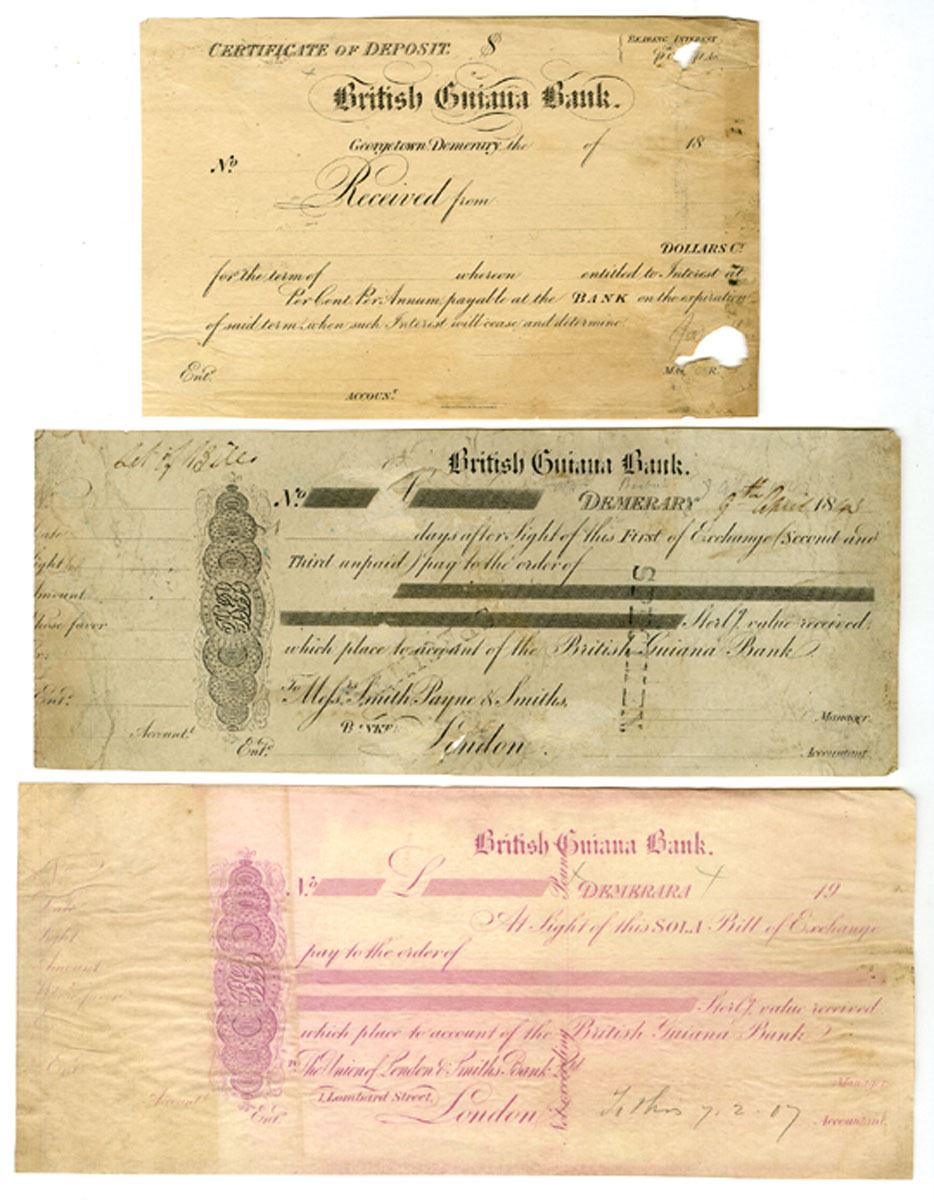 CERTIFICATE OF DEPOSIT. $ BEARING INTEREST
British Guiana Bank.
Georgetown Demerary, the of 18
No.
Received from
DOLLARS Cy.
for the term of whereon entitled to Interest at
Per Cent. Per Annum, payable at the BANK on the expiration
of said term, when such Interest will cease and determine
Entd.
ACCOUNT.
British Guiana Bank.
No. £ DEMERARY 9th April 18
days after Sight of this First of Exchange (Second and
Third unpaid) pay to the order of
Amount
favor
Sterlg. value received:
which place to account of the British Guiana Bank.
To Messrs. Smith Payne & Smiths,
BANKE
London.
Manager.
Accountt.
Entd.
Accountant.
British Guiana Bank.
No. £ DEMERARA 19
At Sight of this SOLA Bill of Exchange
pay to the order of
Sight
Amount
Sterlg. value received
which place to account of the British Guiana Bank
To The Union of London & Smiths Bank Ld.
1, Lombard Street,
London
Not exceeding
Pounds
Manager
7.2.07
Entd.
Accountant.